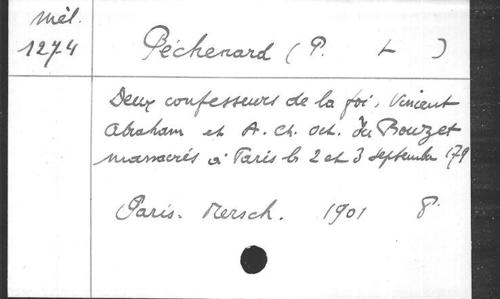 Mél.
1274
Péchenard (P. L )
Deux confesseurs de la foi, Vincent
Abraham et A. Ch. Oct. du Bouzet
massacrés à Paris le 2 et 3 septembre 179
Paris. Mersch. 1901 8°